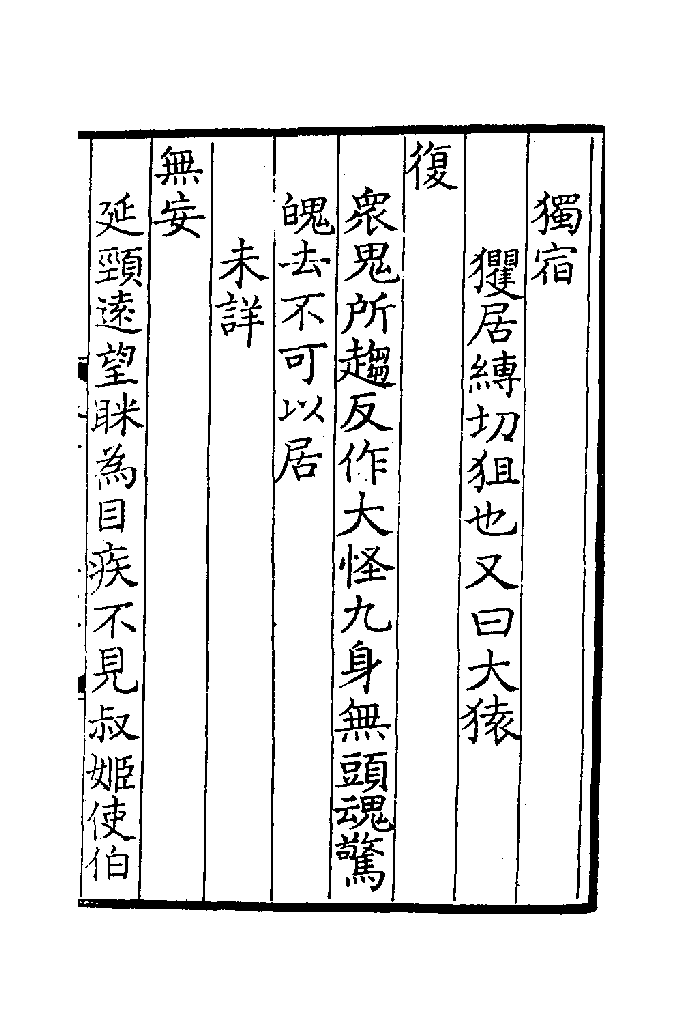 獨宿
玃居縳切狙也又曰大猿
復
衆鬼所趨反作大怪九身無頭魂驚
魄去不可以居
未詳
無妄
延頸遠望眯為目疾不見叔姬使伯